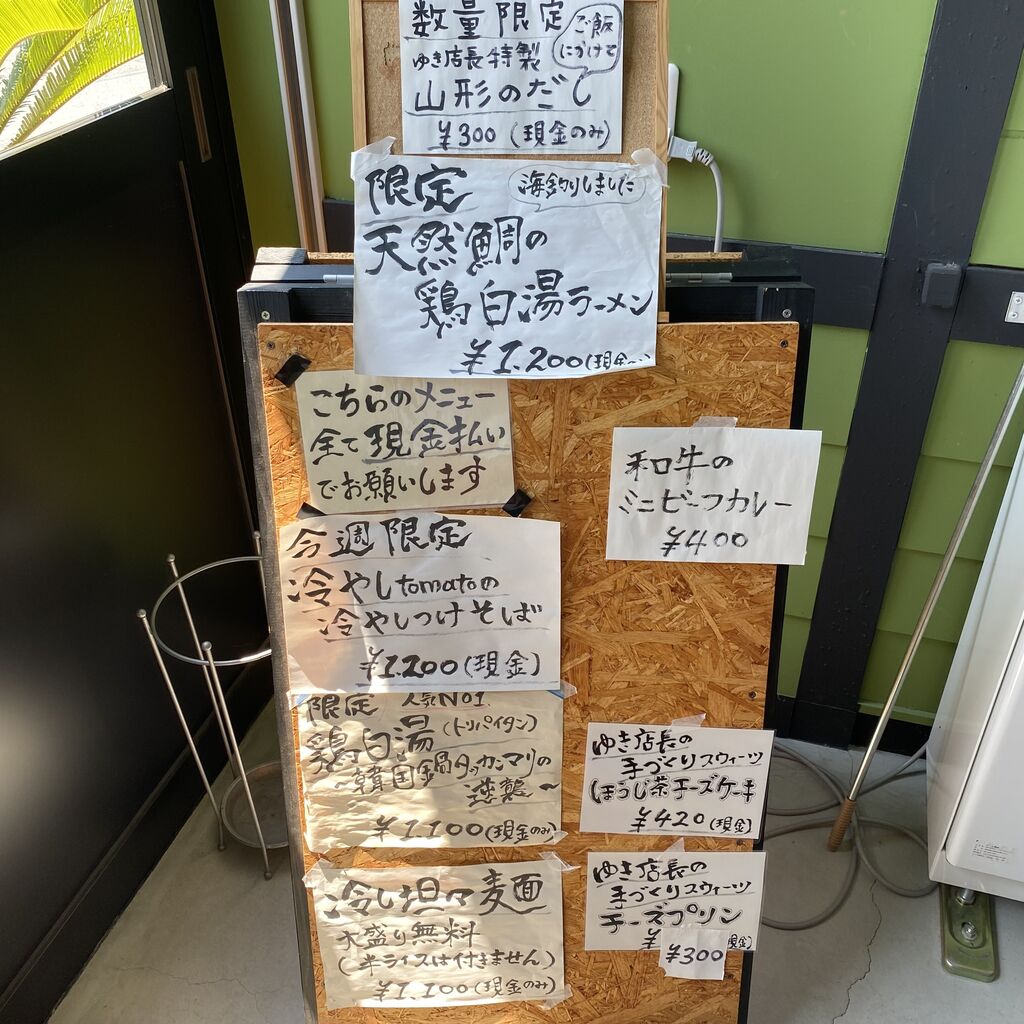 数量限定
ゆき店長特製
ご飯
にかけて
山形のだし
¥300 (現金のみ)
限定
海釣りしました
天然鯛の
鶏白湯ラーメン
¥1,200(現金のみ)
こちらのメニュー
全て現金払い
でお願いします
和牛の
ミニビーフカレー
¥400
今週限定
冷やしtomatoの
冷やしつけそば
¥1.200(現金)
限定 人気NO1.
鶏白湯(トリパイタン)
韓国鍋タッカンマリの
逆襲〜
¥1,100(現金のみ)
ゆき店長の
手づくりスウィーツ
ほうじ茶チーズケーキ
¥420(現金)
冷し坦々麦面
大盛り無料
(半ライスは付きません)
¥1,100(現金のみ)
ゆき店長の
手づくりスウィーツ
チーズプリン
¥300 現金)